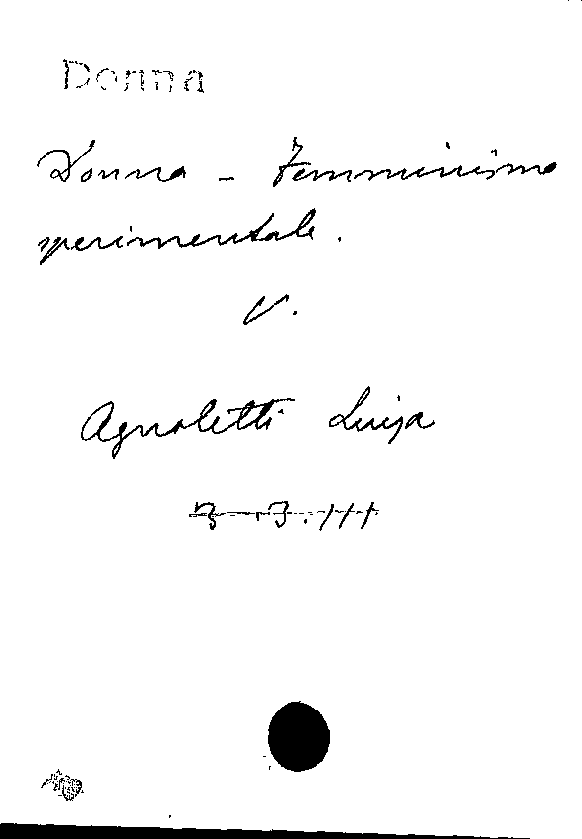 Donna
Donna - Femminismo
sperimentale.
V.
Agnoletti Luisa